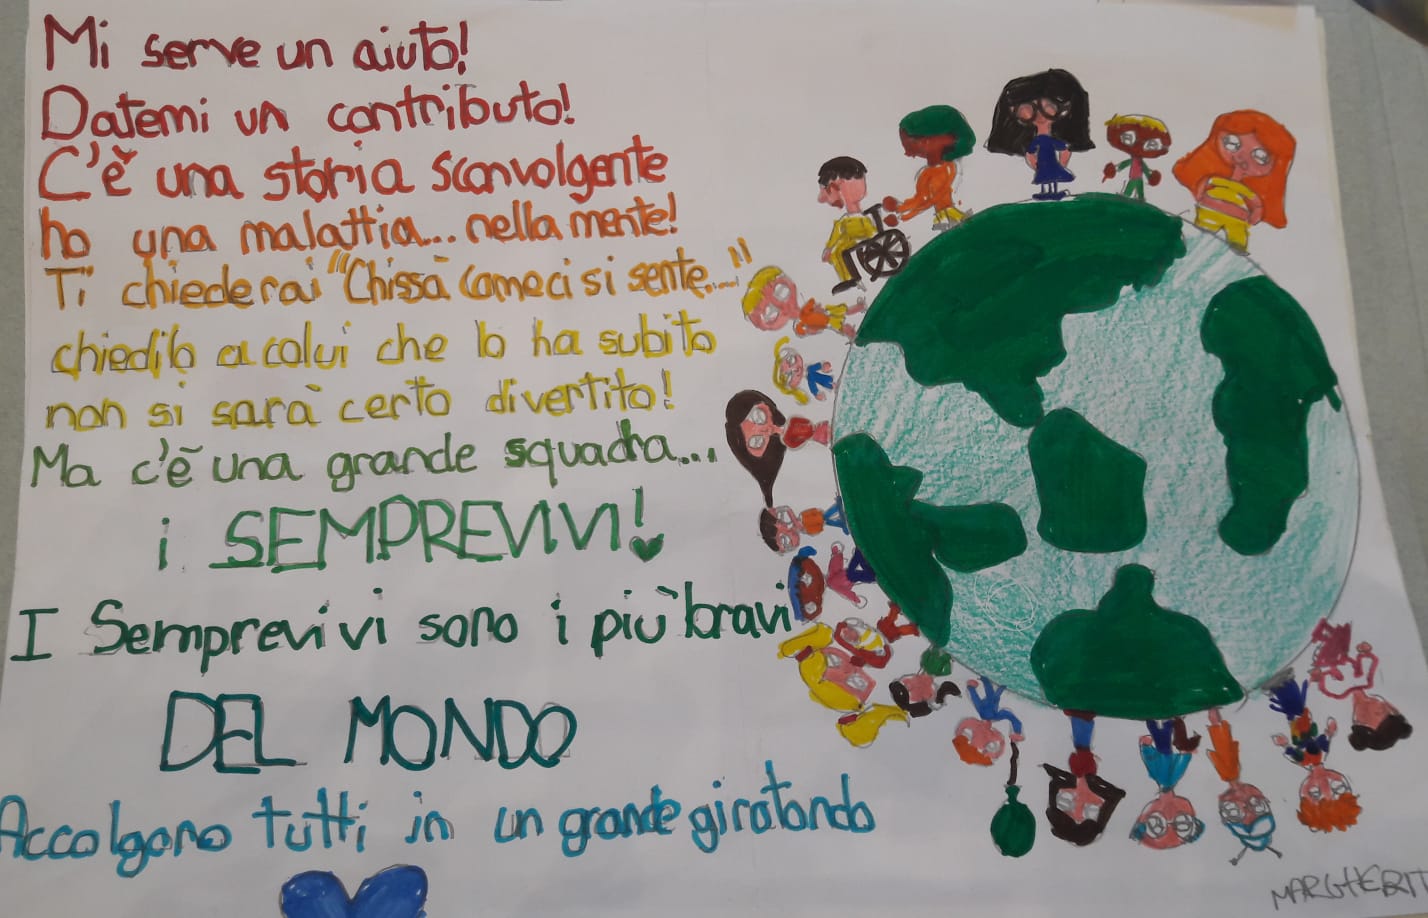 Mi serve un aiuto!
Datemi un contributo!
C'è una storia sconvolgente
ho una malattia... nella mente!
Ti chiederai "Chissà come ci si sente..."
chiedilo a colui che lo ha subito
non si sarà certo divertito!
Ma c'è una grande squadra...
i SEMPREVIVI!
I Semprevivi sono i più bravi
DEL MONDO
Accolgono tutti in un grande girotondo
MARGHERIT